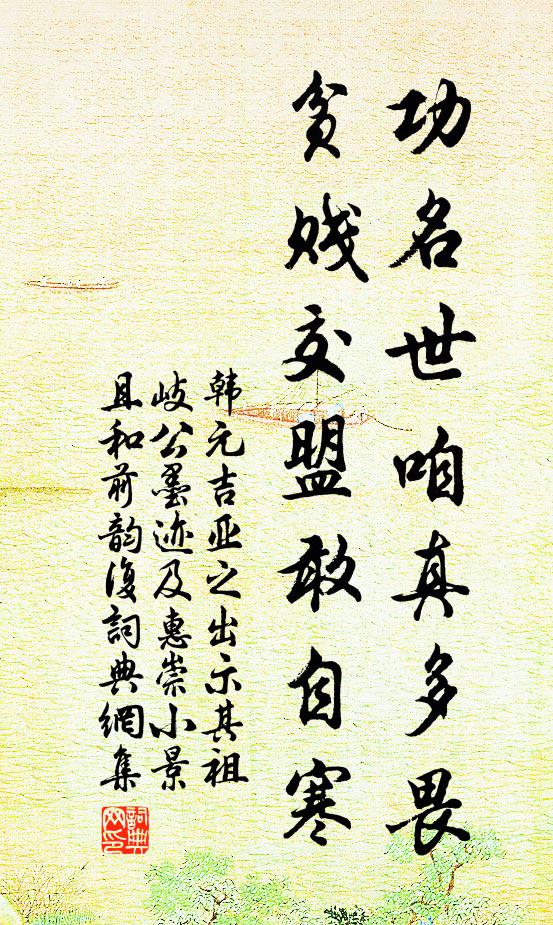 功名世咱真多畏
贫贱交盟敢自寒
韩元吉亚之出示其祖
岐公墨迹及惠崇小景
且和前韵復詞典網集
詞典
网印